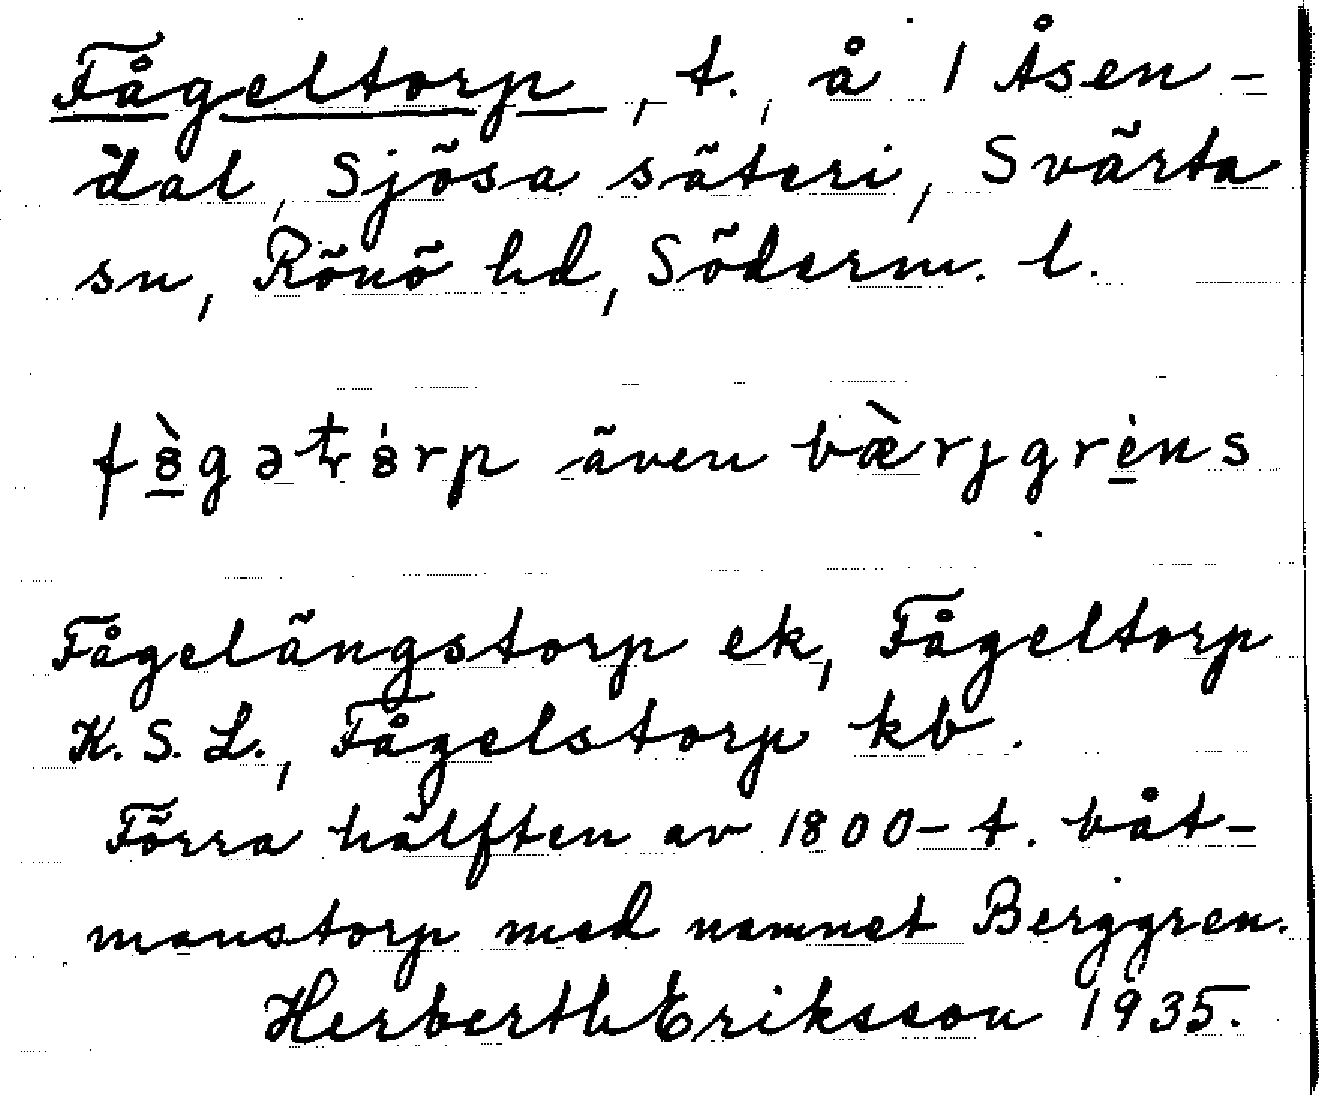 Fågeltorp, t., å 1 Åsen-
dal, Sjösa säteri, Svärta
sn, Rönö hd, Söderm. l.
även
Fågelängstorp ek, Fågeltorp
K. S. L., Fågelstorp kb.
Förra hälften av 1800-t. båt-
manstorp med namnet Berggren.
Herberth Eriksson 1935.